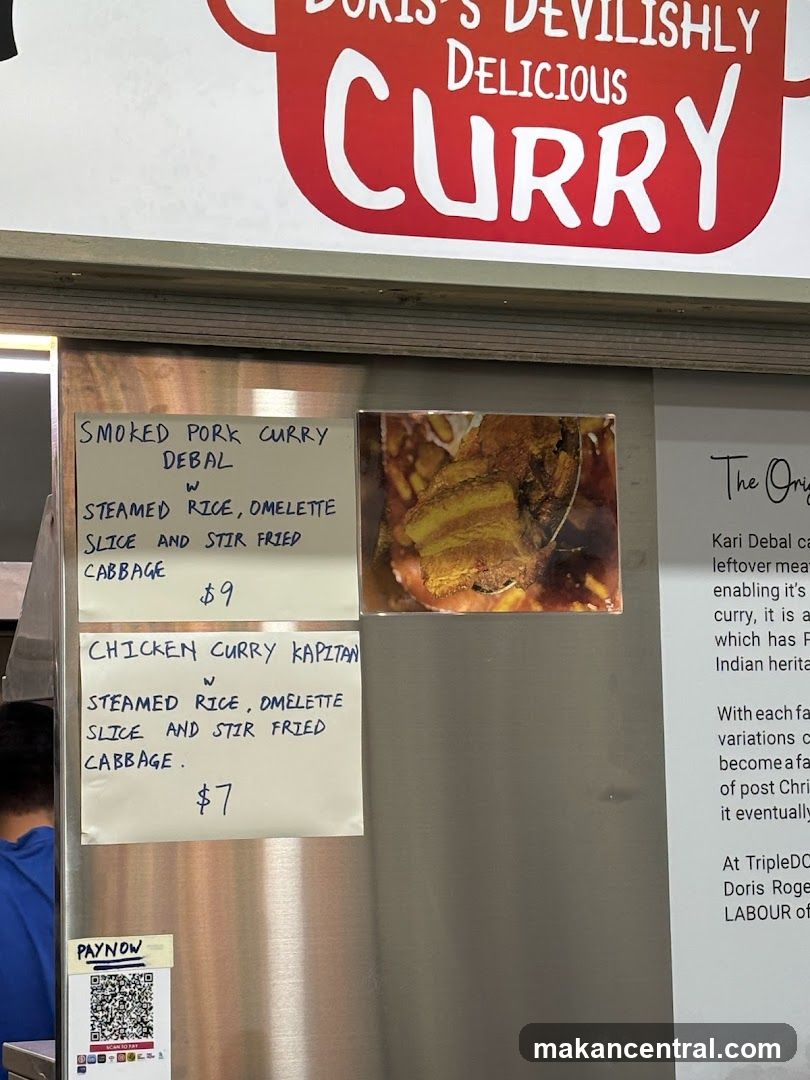 DORIS'S DEVILISHLY
DELICIOUS
CURRY
SMOKED PORK CURRY
DEBAL
W
STEAMED RICE, OMELETTE
SLICE AND STIR FRIED
CABBAGE
$9
CHICKEN CURRY KAPITAN
W
STEAMED RICE, OMELETTE
SLICE AND STIR FRIED
CABBAGE.
$7
The
Kari Debal
leftover
enabling it's
curry, it is a
which has
Indian
With each
variations
become a
of post
it eventually
At
Doris
LABOUR of
PAYNOW
SCAN TO PAY
makancentral.com